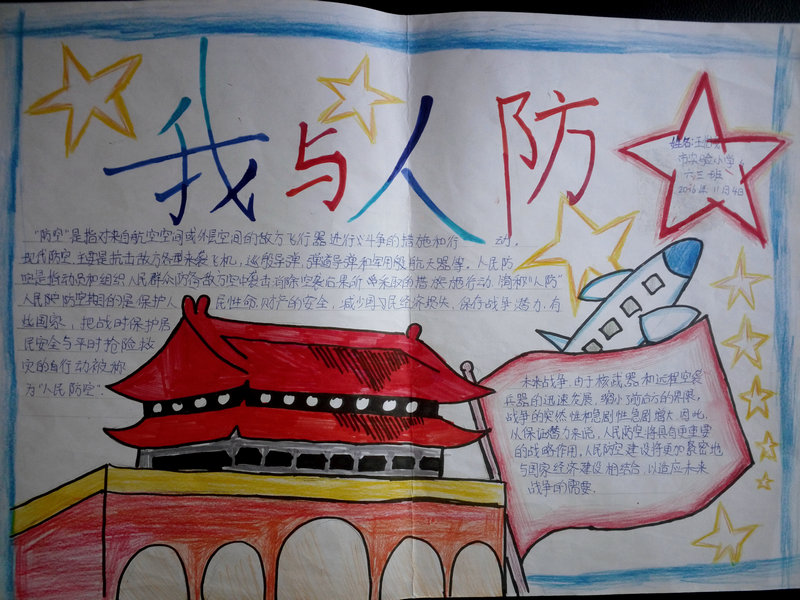 我与人防
姓名:王
市实验小学
六三班
2016年11月4日
"防空"是指对来自航空空间或外层空间的敌方飞行器进行斗争的措施和行动,
现代防空主要是抗击敌方各种来袭飞机,巡航导弹,弹道导弹和军用航天器等。人民防
空是指动员和组织人民群众防备敌方空中袭击消除空袭后果所单采取的措施实施行动,简称"人防"
人民防空目的是保护人民性命,财产的安全,减少国民经济损失,保存战争潜力.有
些国家,把战时保护居
民安全与平时抢险救
灾的自行动被称
为"人民防空".
未来战争,由于核武器和远程空袭
兵器的迅速发展,缩小了前后方的界限,
战争的突然性和急剧性急剧增大.因此,
从保证潜力来说,人民防空将具有更重要
的战略作用,人民防空建设将更加紧密地
与国家经济建设相结合,以适应未来
战争的需要.